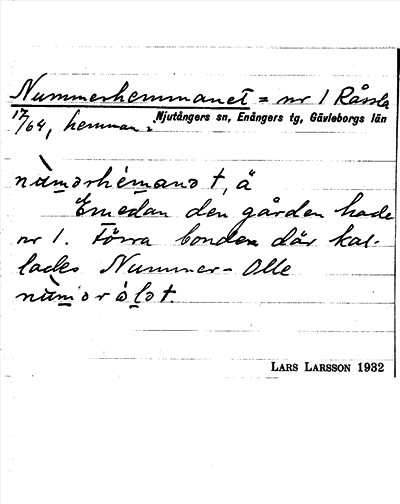 Nummerhemmanet = nr 1 Råssla
17/64, hemman.
Njutångers sn, Enångers tg, Gävleborgs län
nùmərhémanə t, ä
Emedan den gården hade
nr 1. Förra bonden där kal-
lades Nummer-Olle
nùmər ólə t.
LARS LARSSON 1932